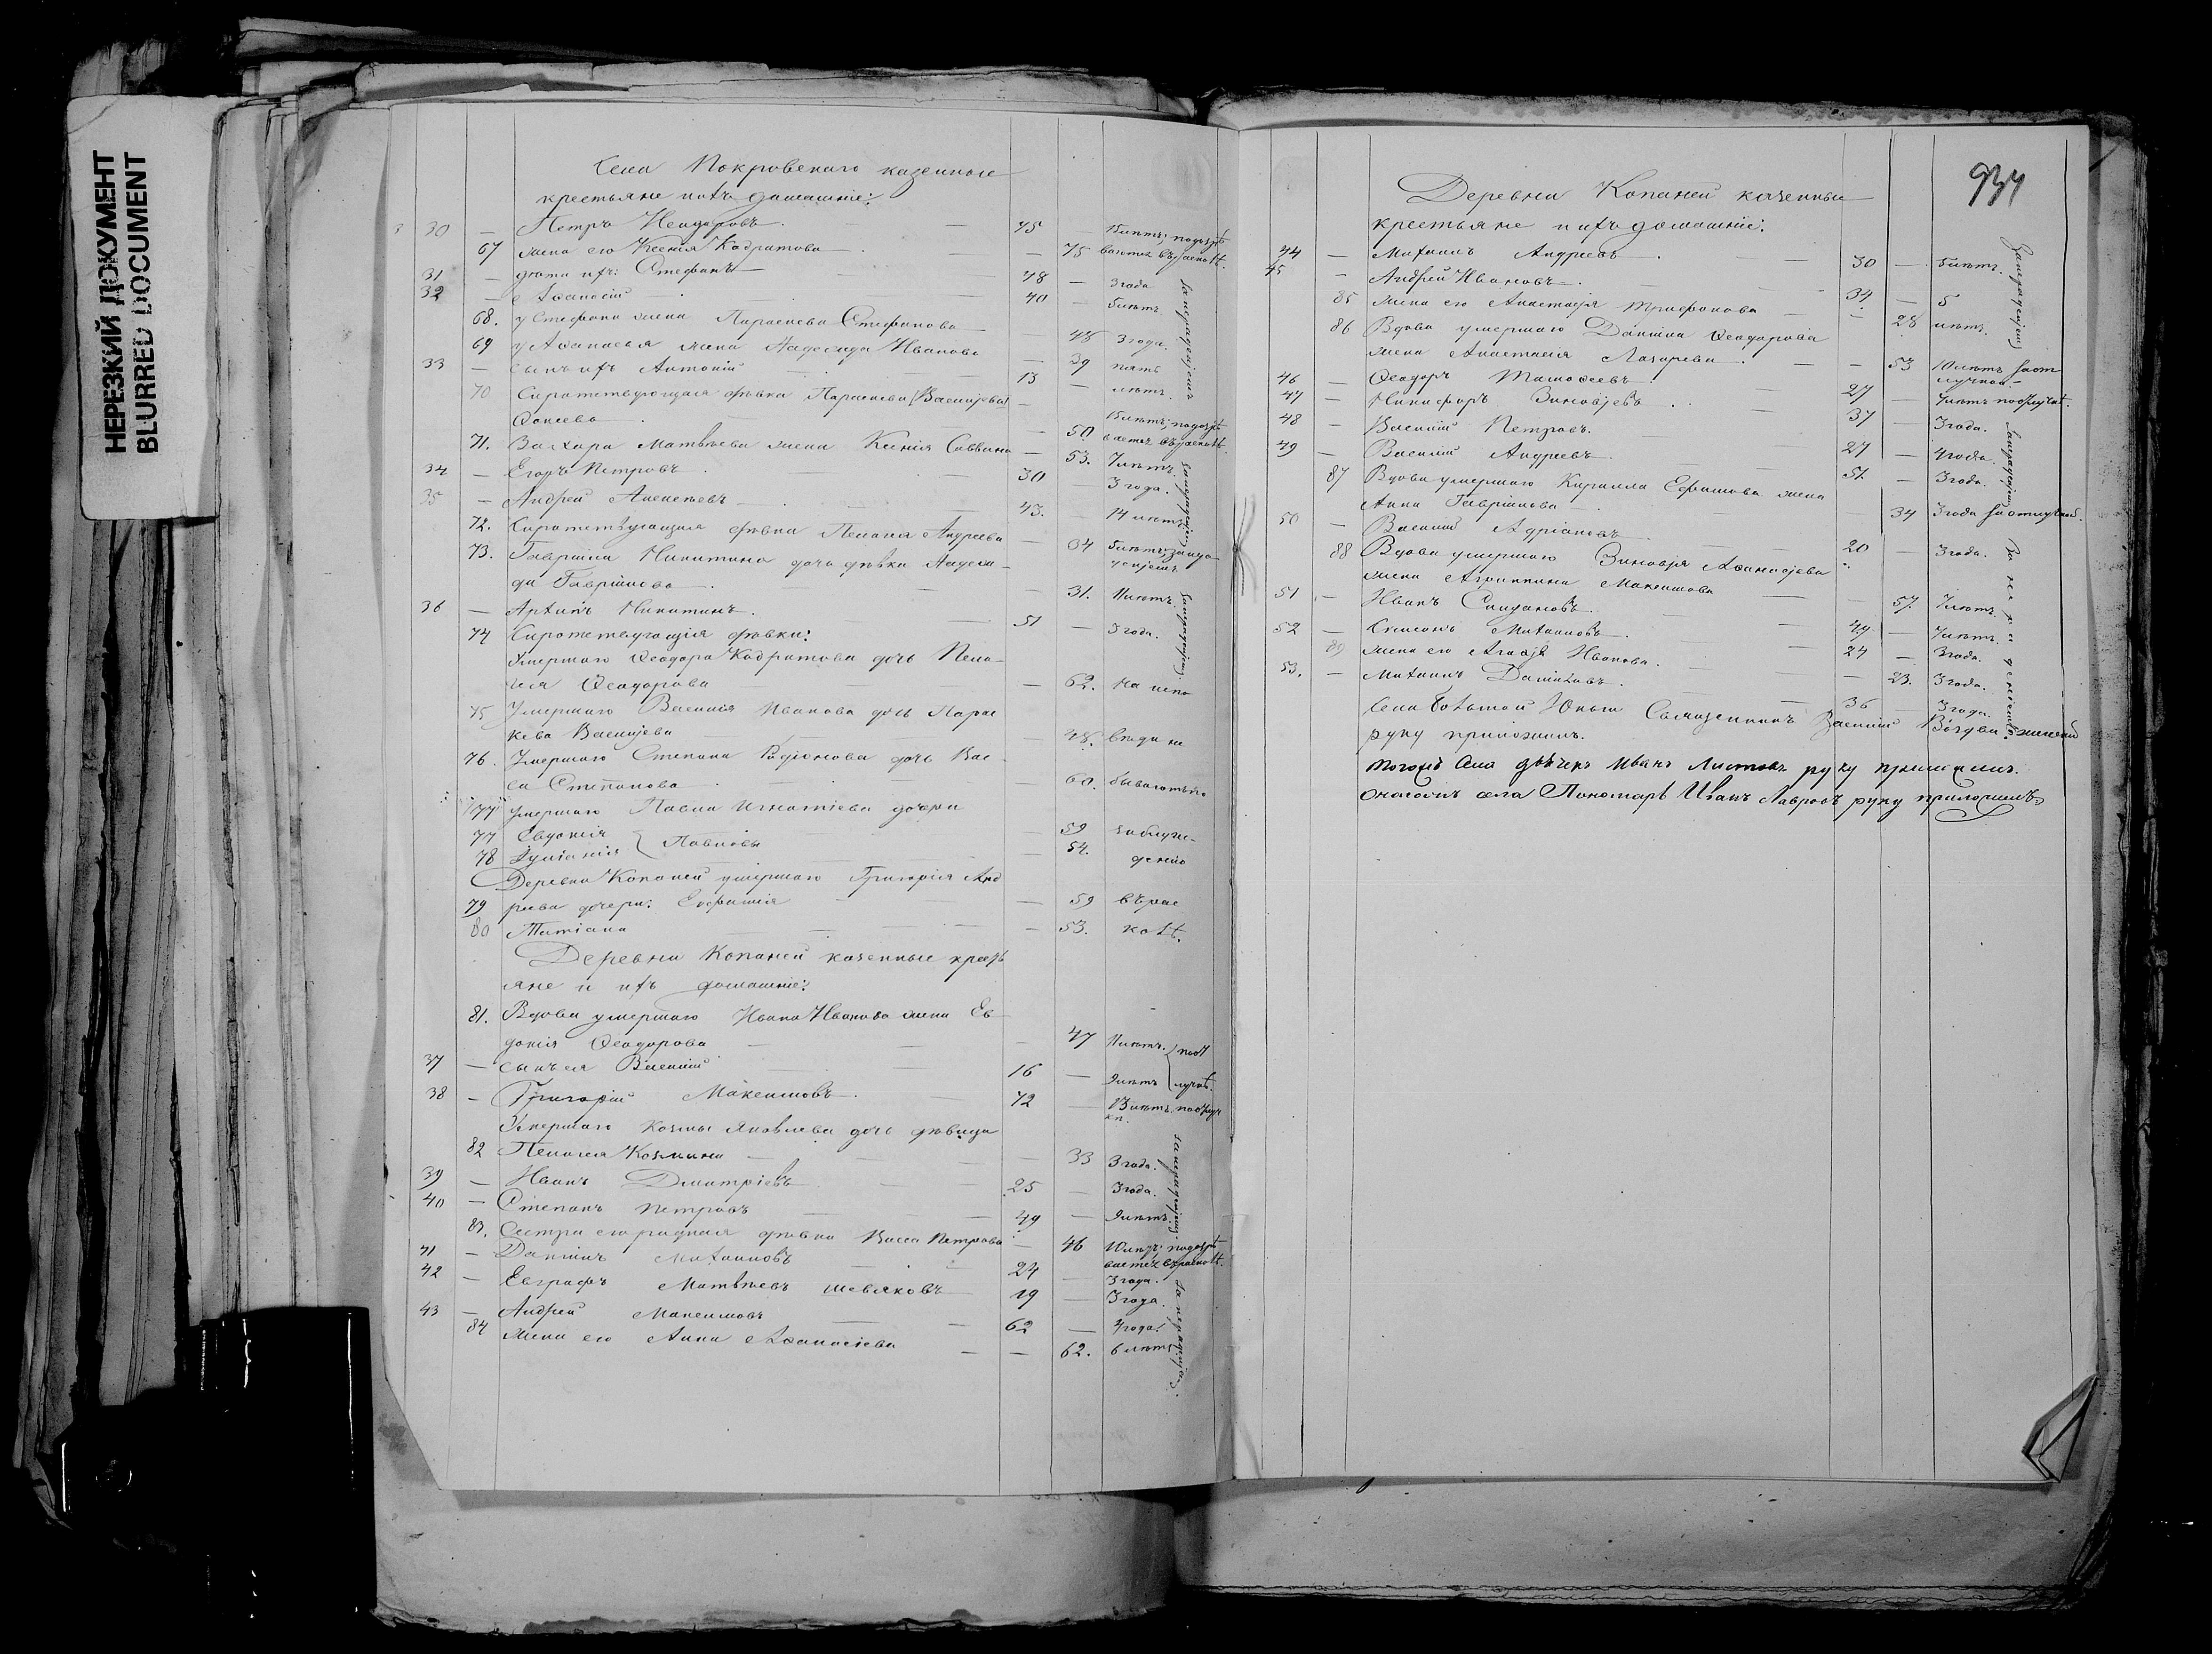 НЕРЕЗКИЙ ДОКУМЕНТ
BLURRED DOCUMENT
Села Покровскаго казенные
крестьяне и ихъ домашніе:
30 — Петръ Неодоровъ — 75 —
67 жена его Ксенія Кодратова — 75
31 — дѣти ихъ: Стефанъ — 48 — 3 года
32 — Аѳанасій — 40 — 5 лѣтъ
68. у Стефана жена Параскева Стефанова — 48 3 года.
69 у Аѳанасья жена Надежда Иванова — 39 пять
33 — сынъ ихъ Антоній 13 — лѣтъ.
70 Сиротствующая дѣвка Параскева Васильева
— 50
71. Захара Матвѣева жена Ксенія Саввина — 53. 7 лѣтъ.
34 — Егоръ Петровъ 30 — 3 года.
35 — Андрей Алексѣевъ 43. — 14 лѣтъ
72. Сиротствующая дѣвка Пелагея Андреева — 34
73. Гавріила Никитина дочь дѣвка Надеж-
да Гавріилова — 31. 11 лѣтъ.
36 — Архипъ Никитинъ. 51 — 3 года.
74 Сиротствующія дѣвки:
Умершаго Ѳеодора Кодратова дочь Пела-
гея Ѳеодорова — 62. На испо
75 Умершаго Василія Иванова дочь Парас
кева Васильева — 48. вѣди не
76. Умершаго Степана Родіонова дочь Вас-
са Степанова — 60. бываютъ по
умершаго Павла Игнатіева дочери
77 Евдокія } Павловы 59 заблуж-
78 Іуліанія 54. денію
Деревни Копаней умершаго Григорія Анд
79 реева дочери: Евфимія — 59 въ рас
80 Татіана — 53. колѣ.
Деревни Копаней казенные кресть
яне и ихъ домашніе:
81. Вдова умершаго Ивана Иванова жена Ев
докія Ѳеодорова — 47 11 лѣтъ.
37 — сынъ ея Василій 16 — 9 лѣтъ
38 — Григорій Максимовъ. 72 — 13 лѣтъ
Умершаго Козмы Яковлева дочь дѣвица
82 Пелагея Козмина — 33 3 года.
39 — Иванъ Дмитріевъ — 25 — 3 года.
40 — Степанъ Петровъ — 49 — 9 лѣтъ.
83. Сестра его родная дѣвка Васса Петрова — 46
41 — Даніилъ Михаиловъ 24 — 3 года.
42 — Евграфъ Матвѣевъ 19 — 3 года.
43 — Андрей Максимовъ — 62 — 4 года.
84 жена его Анна Аѳанасіева — 62. 6 лѣтъ
934
Деревни Копаней казенные
крестьяне и ихъ домашніе:
44 — Михаилъ Андреевъ. — 30 — 5 лѣтъ.
45 — Андрей Ивановъ. — 34 — 5
85 жена его Анастасія Трифонова — 28 лѣтъ.
86 Вдова умершаго Даніила Ѳеодорова
жена Анастасія Лазарева — 53 10 лѣтъ за от
лучкой.
46 — Ѳеодоръ Тимоѳеевъ 27 —
47 — Никифоръ Зиновіевъ. 37 — 3 года.
48 — Василій Петровъ. 27 — 4 года.
49 — Василій Андреевъ. 51 — 3 года.
87 Вдова умершаго Кирилла Ефимова жена
Анна Гавріилова — 34 3 года за отлучкой.
50 — Василій Адріановъ — 20 — 3 года.
88 Вдова умершаго Зиновія Аѳанасіева
жена Агриппина Максимова — 57. 7 лѣтъ.
51 — Иванъ Спидоновъ. 49 — 7 лѣтъ.
52 — Симеонъ Михаиловъ. 24 — 3 года.
89 жена его Агафія Иванова. — 23. 3 года.
53. — Михаилъ Даниловъ. 36 3 года.
За нерадѣніемъ.
Села Священникъ Василій
руку приложилъ.
Тогожъ села дьячекъ Иванъ Листовъ руку приложилъ.
Онагожъ села Пономарь Иванъ Лавровъ руку приложилъ